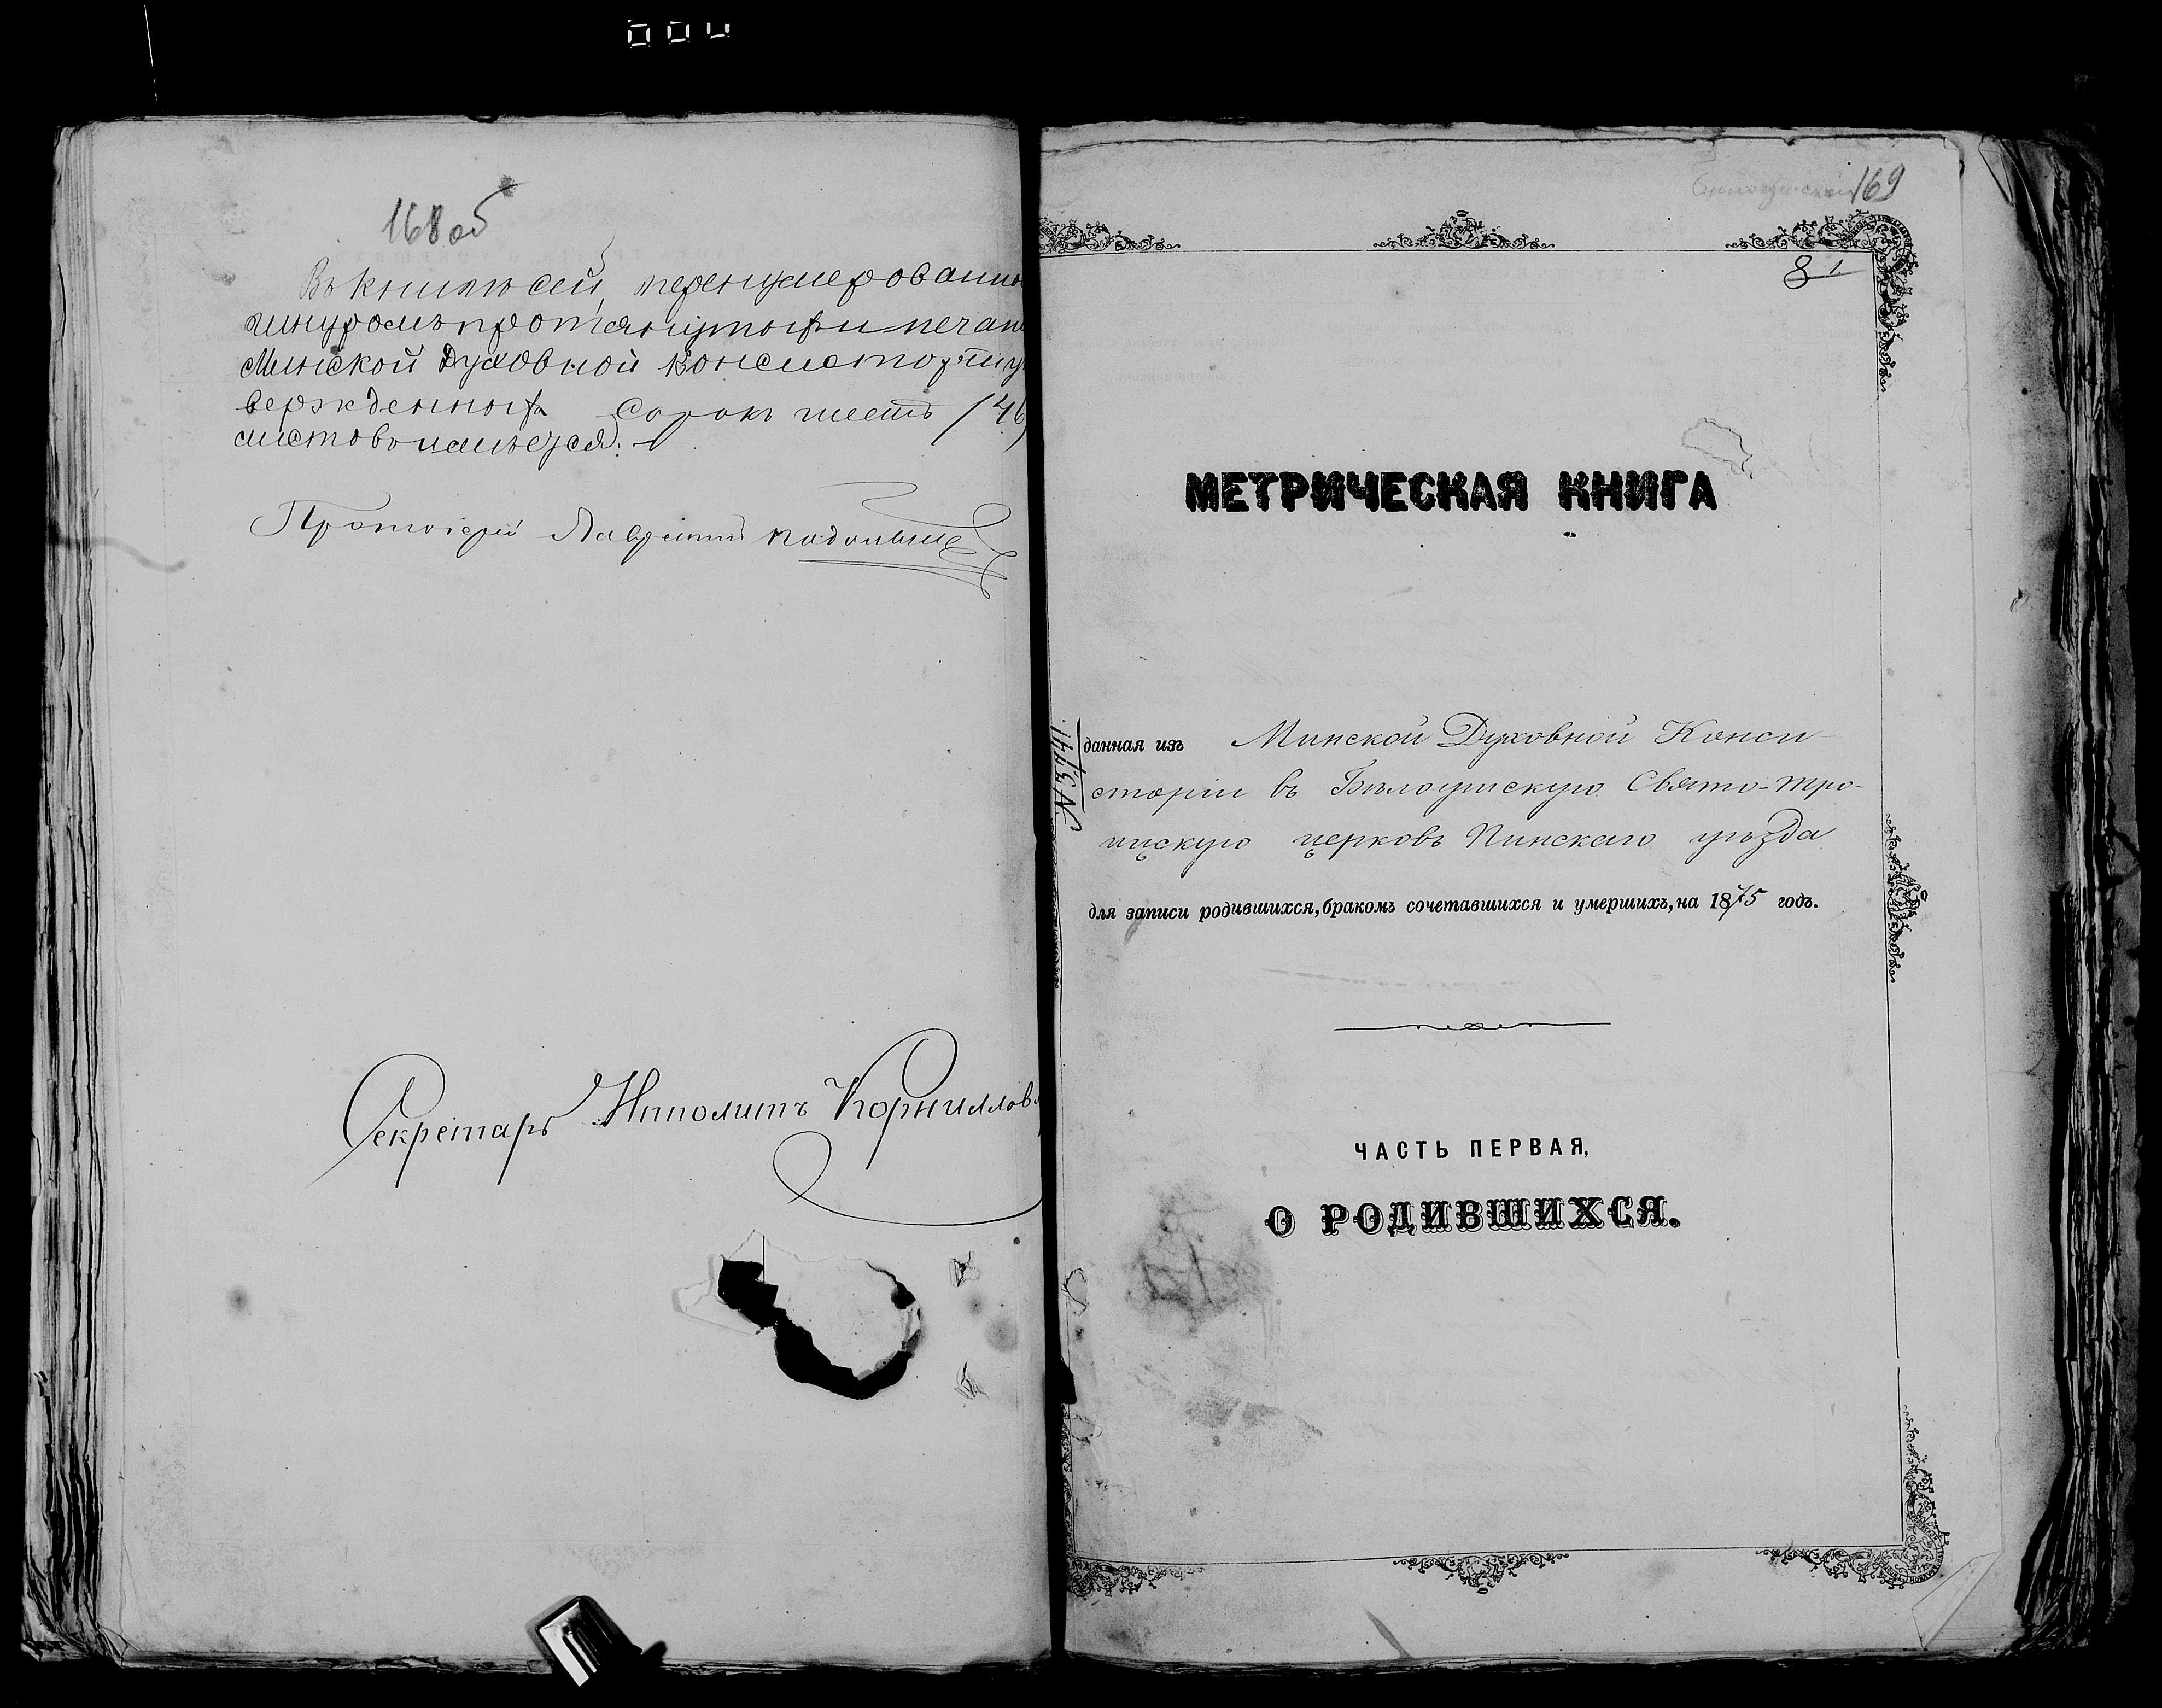 168 об
Въ книгѣ сей, перенумерованн
шнуромъ протянутой и печат
Минской Духовной Консисторіи у
вержденной сорокъ шесть (46)
листовъ имѣется.
Протоіерей Лаврентій
Секретарь Ипполитъ Корниллов
169
8
МЕТРИЧЕСКАЯ КНИГА
№ 3741.
данная изъ Минской Духовной Конси-
сторіи въ Бѣлоушскую Свято-Тро-
ицкую церковь Пинскаго уѣзда
для записи родившихся, бракомъ сочетавшихся и умершихъ, на 1875 годъ.
ЧАСТЬ ПЕРВАЯ,
О РОДИВШИХСЯ.